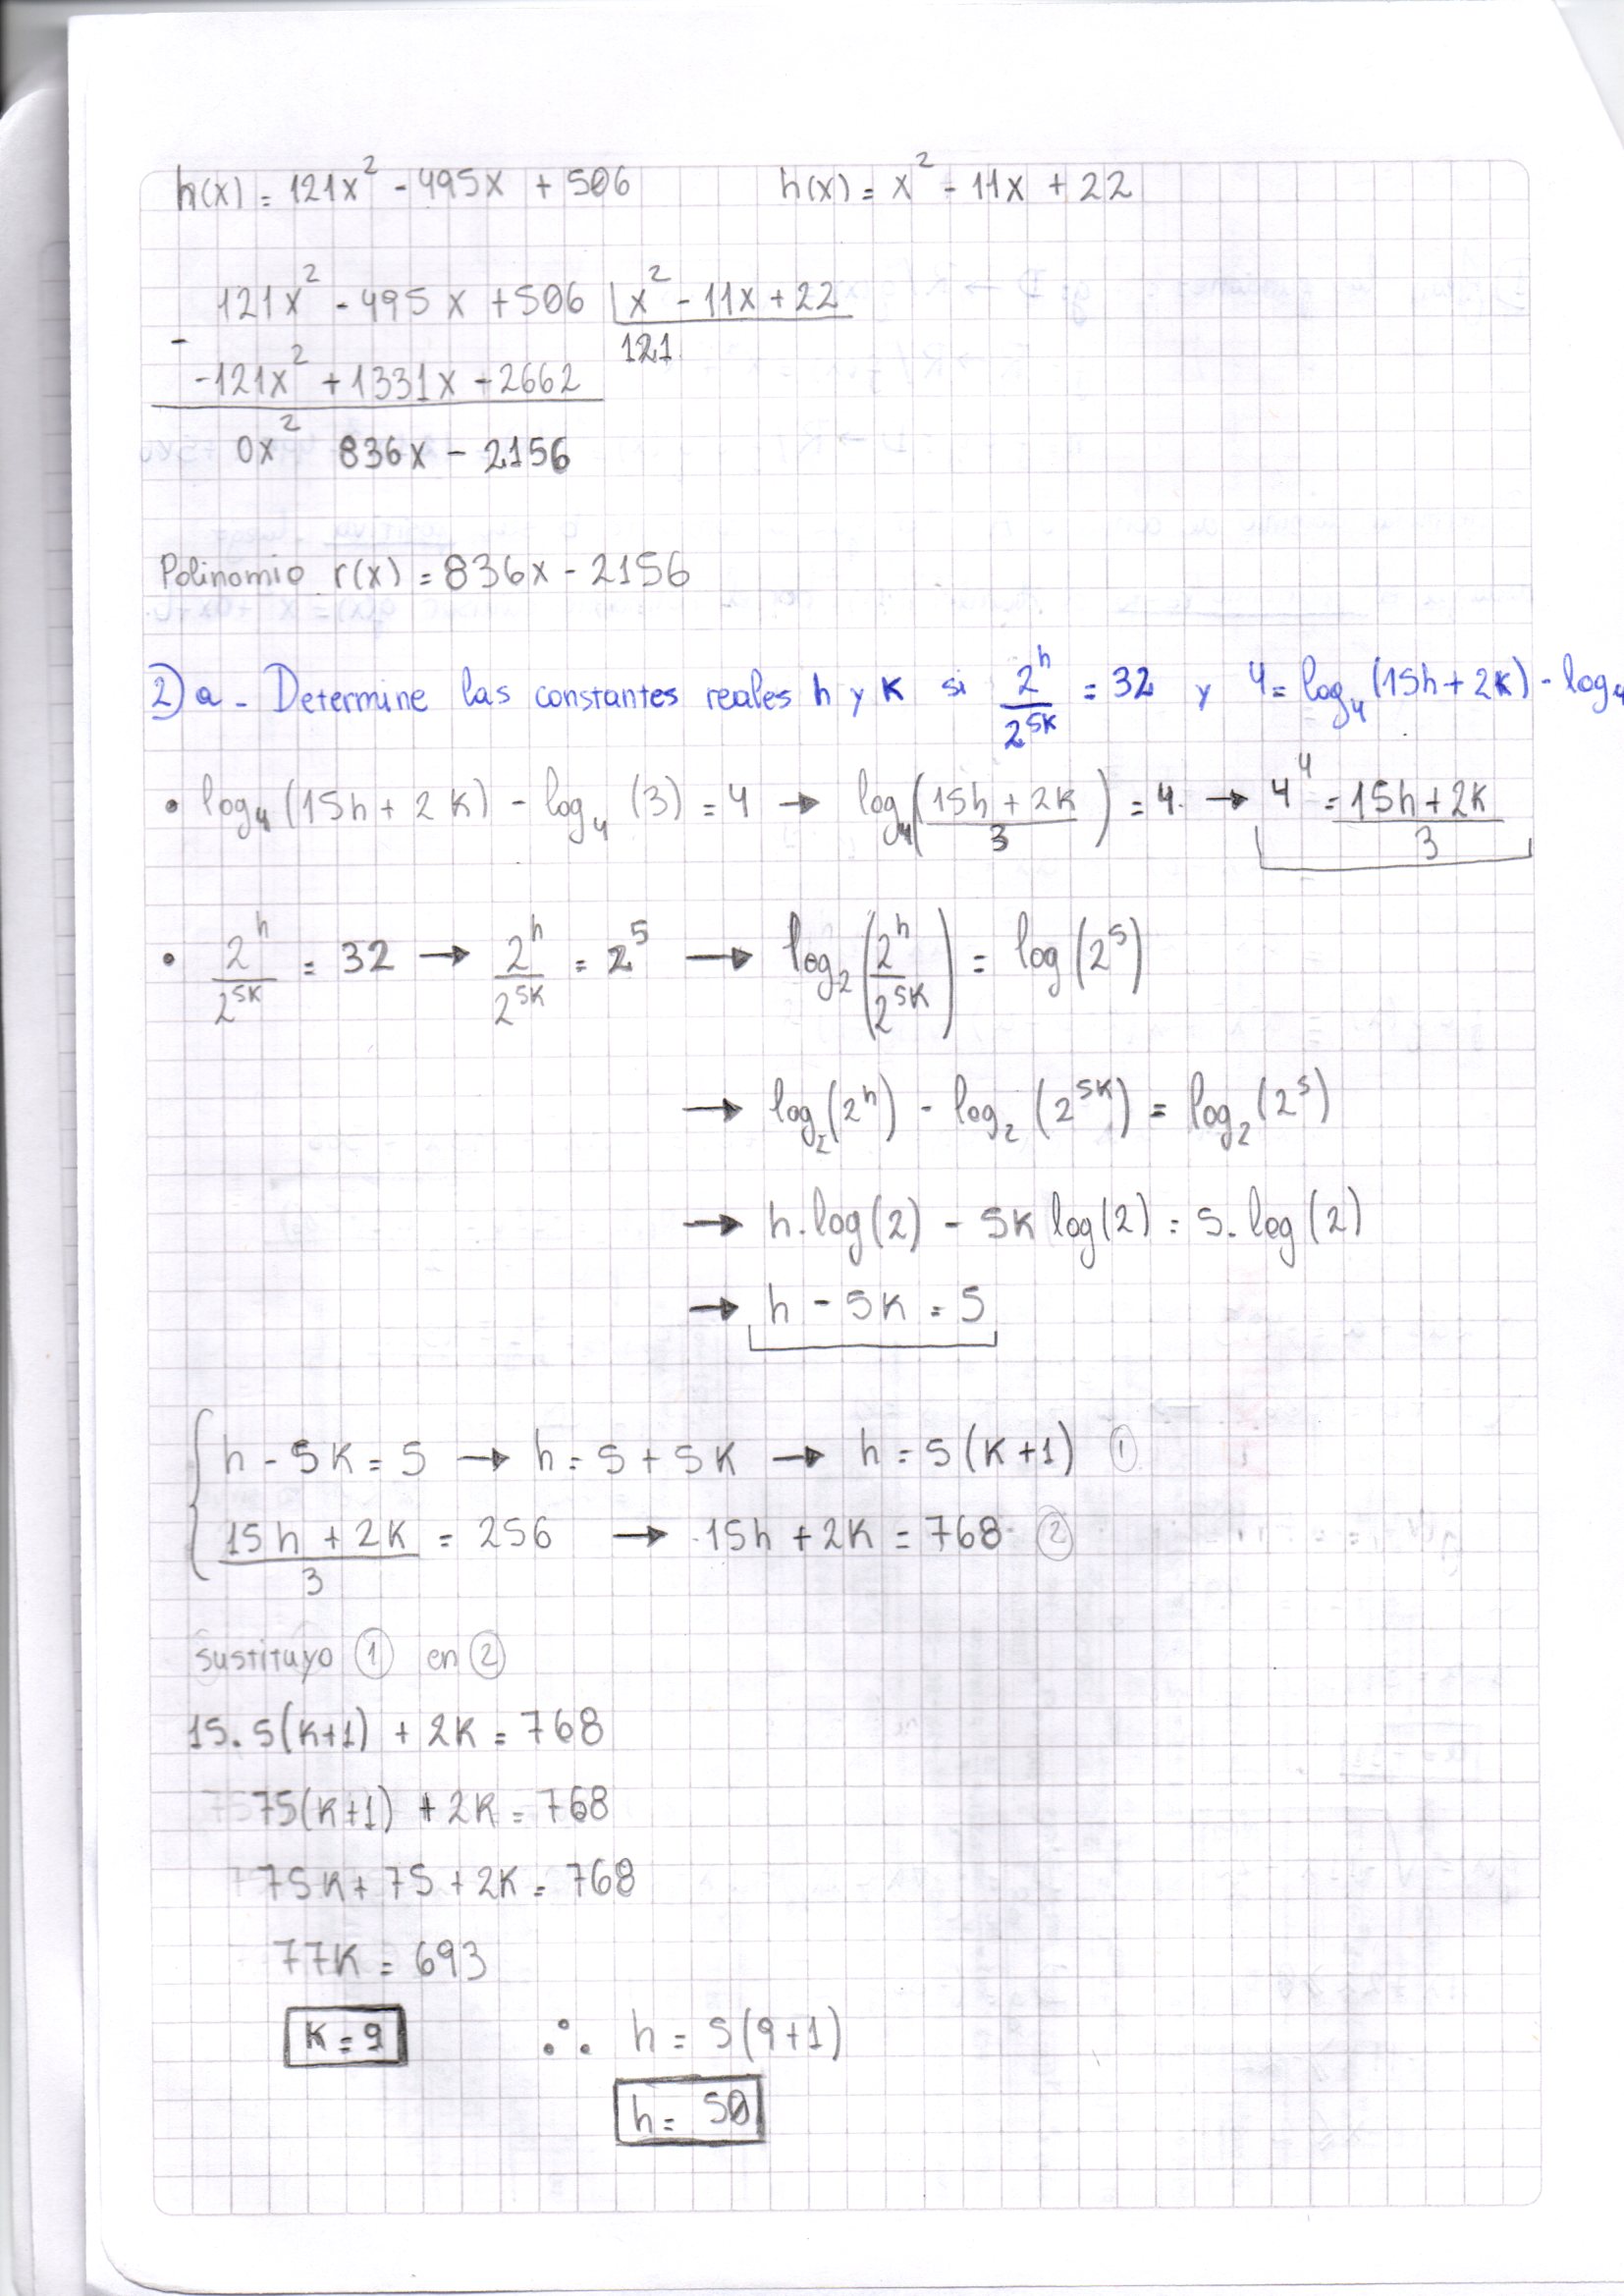 h(x) = 121x² - 495x + 506 h(x) = x² - 11x + 22
121x² - 495x + 506 | x² - 11x + 22
- -121x² + 1331x - 2662 121
0x² 836x - 2156
Polinomio r(x) = 836x - 2156
2) a - Determine las constantes reales h y K si 2^h / 2^5K = 32 y 4 = log₄ (15h + 2K) - log₄
• log₄ (15h + 2K) - log₄ (3) = 4 → log₄ ((15h + 2K) / 3) = 4 → 4⁴ = (15h + 2K) / 3
• 2^h / 2^5K = 32 → 2^h / 2^5K = 2⁵ → log₂ (2^h / 2^5K) = log (2⁵)
→ log₂ (2^h) - log₂ (2^5K) = log₂ (2⁵)
→ h . log (2) - 5K log (2) = 5 . log (2)
→ h - 5K = 5
{ h - 5K = 5 → h = 5 + 5K → h = 5 (K+1) ①
(15h + 2K) / 3 = 256 → 15h + 2K = 768 ②
Sustituyo ① en ②
15 . 5(K+1) + 2K = 768
75(K+1) + 2K = 768
75K + 75 + 2K = 768
77K = 693
K = 9 ∴ h = 5(9+1)
h = 50